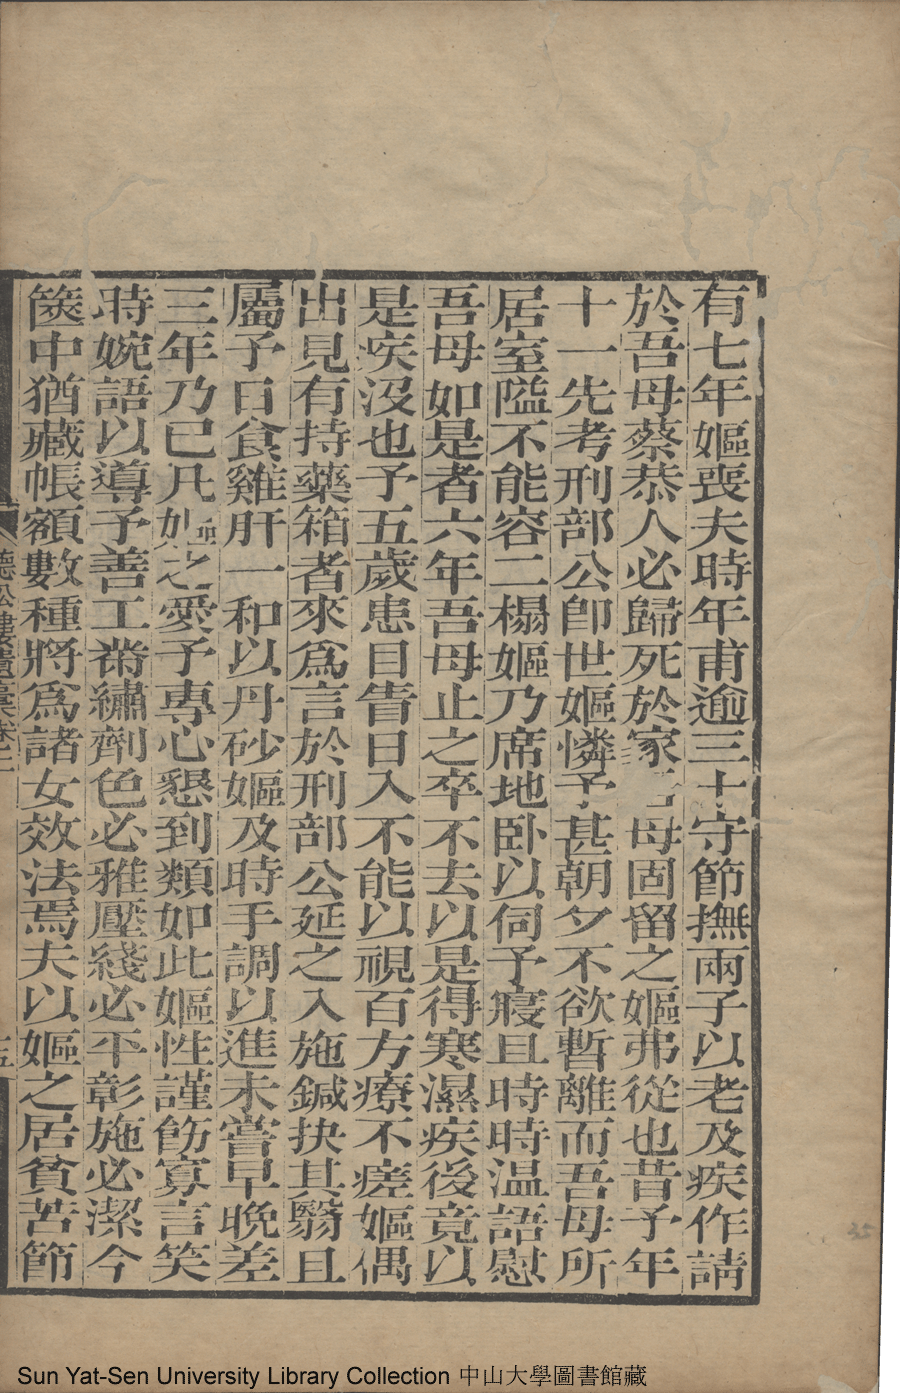 有七年嫗喪夫時年甫逾三十守節撫兩子以老及疾作請
於吾母蔡恭人必歸死於家吾母固留之嫗弗從也昔予年
十一先考刑部公卽世嫗憐予甚朝夕不欲暫離而吾母所
居室隘不能容二榻嫗乃席地卧以伺予寢且時時温語慰
吾母如是者六年吾母止之卒不去以是得寒濕疾後竟以
是疾沒也予五歲患目眚日入不能以視百方療不瘥嫗偶
出見有持藥箱者來爲言於刑部公延之入施鍼抉其翳且
屬予日食雞肝一和以丹砂嫗及時手調以進未嘗早晚差
三年乃已凡嫗之愛予專心懇到類如此嫗性謹飭寡言笑
時婉語以導予善工黹繡劑色必雅壓綫必平彰施必潔今
篋中猶藏帳額數種將爲諸女效法焉夫以嫗之居貧苦節
德松樓遺稾卷二
十五
Sun Yat-Sen University Library Collection 中山大學圖書館藏